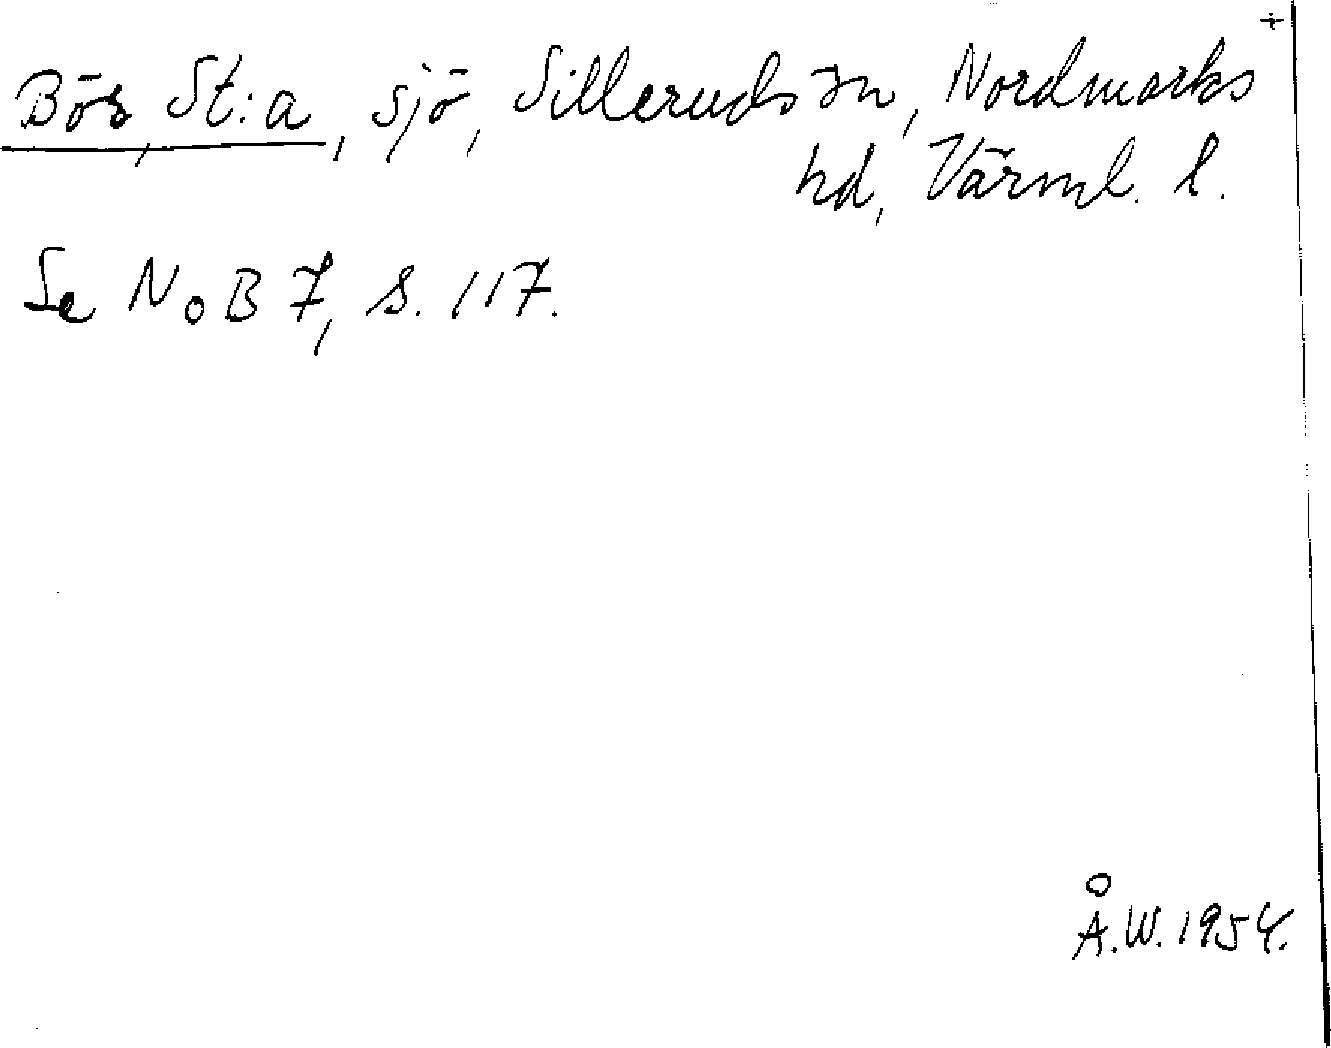 +
Bös, St:a, sjö, Silleruds sn, Nordmarks
hd, Värml. l.
Se NoB 7, s. 117.
Å.W. 1954.